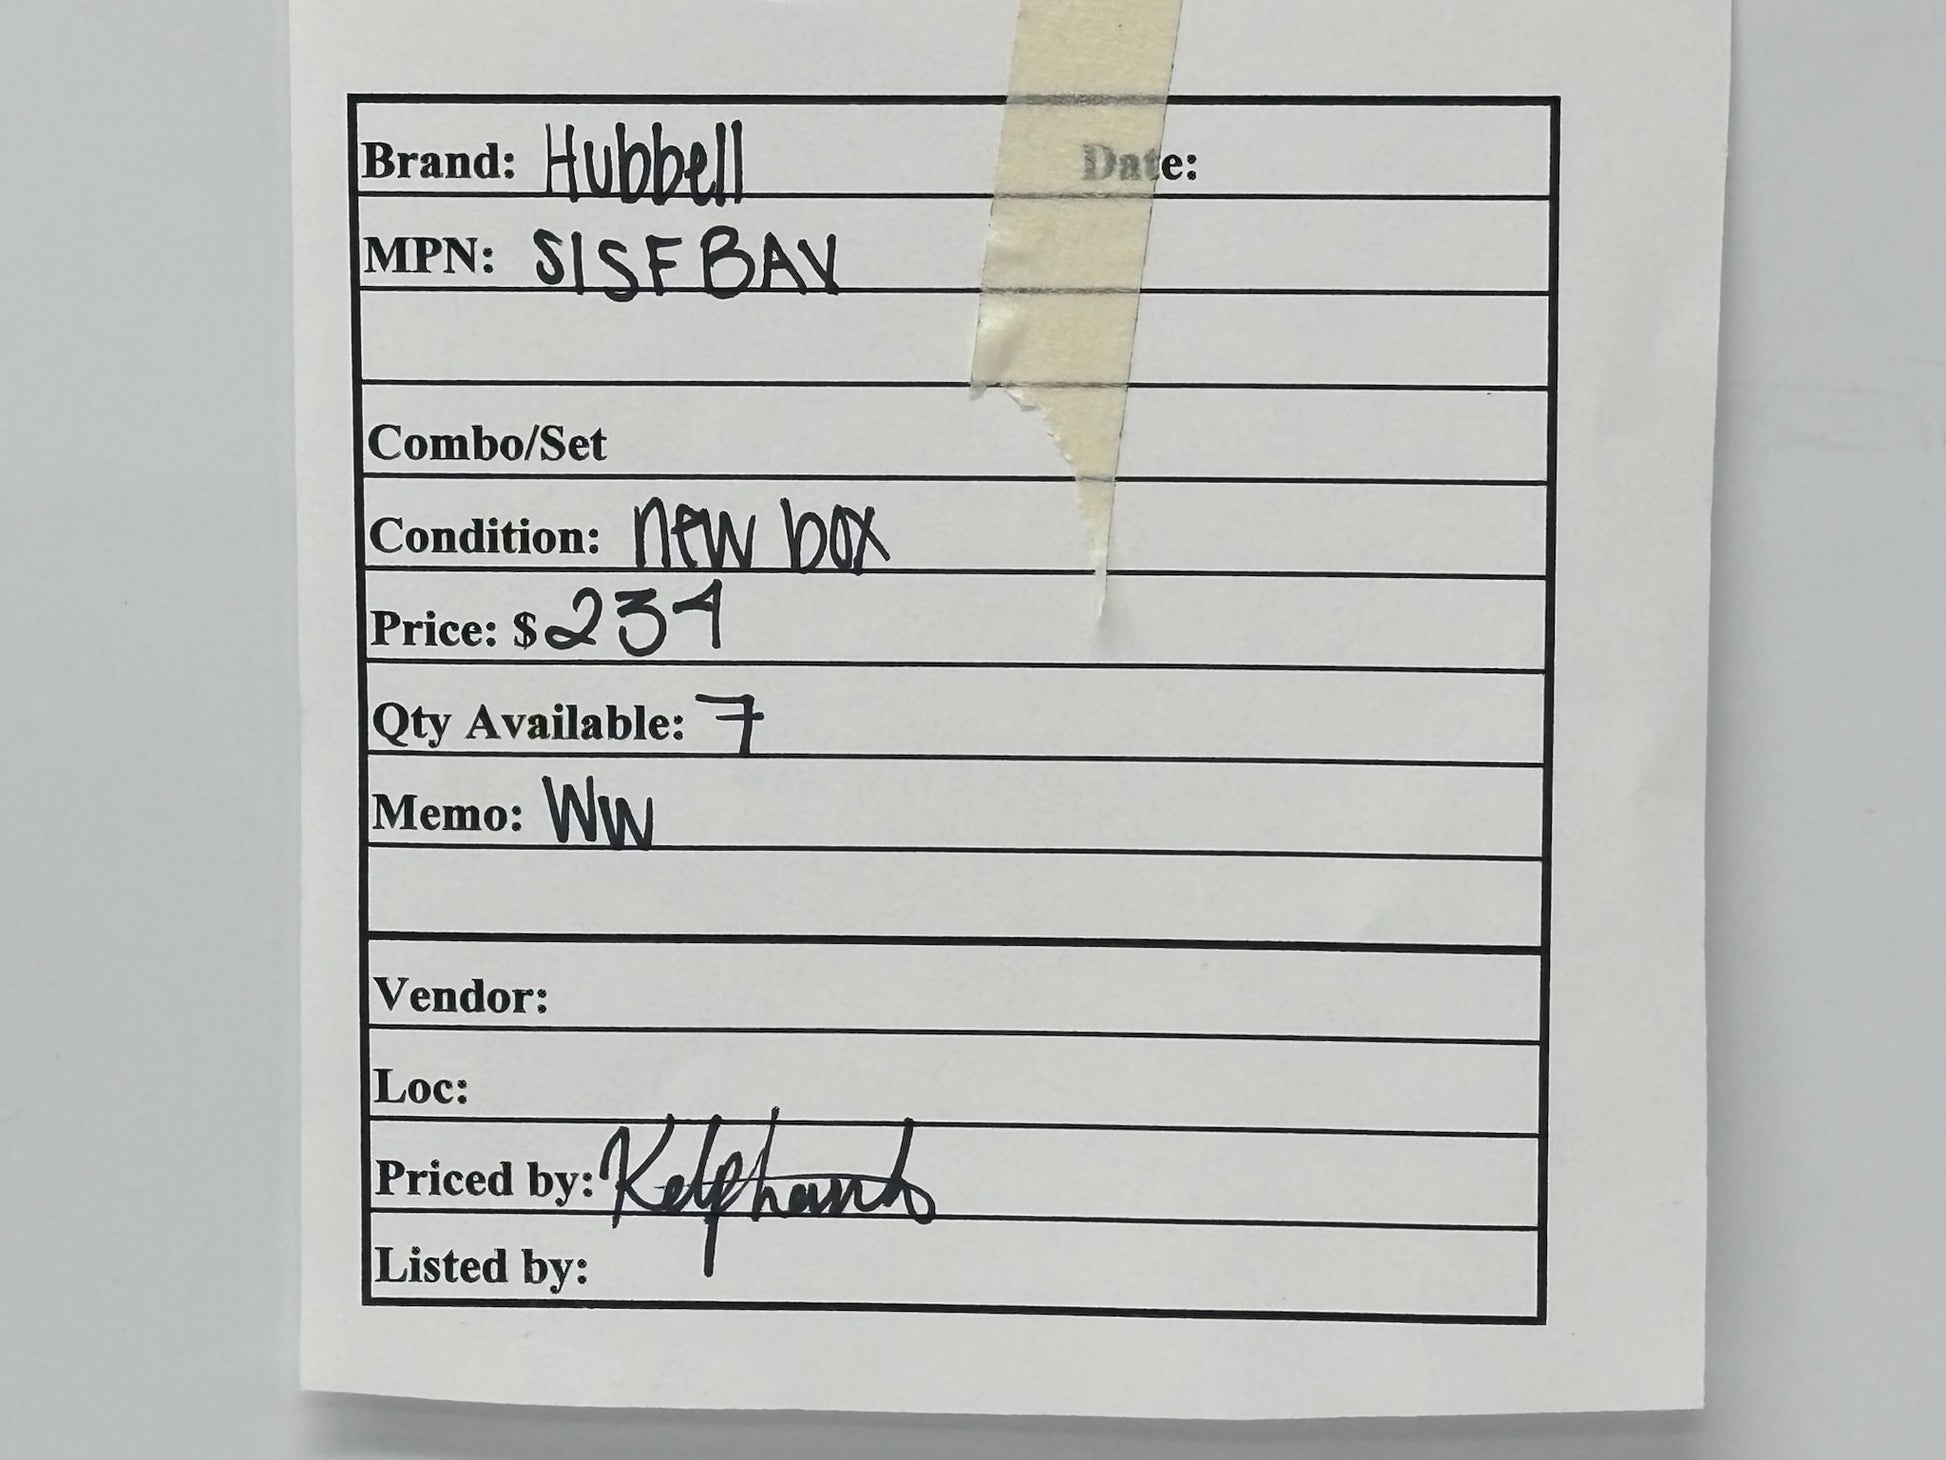 Brand: Hubbell Date:
MPN: SISFBAV
Combo/Set
Condition: new box
Price: $ 234
Qty Available: 7
Memo: WW
Vendor:
Loc:
Priced by:
Listed by: